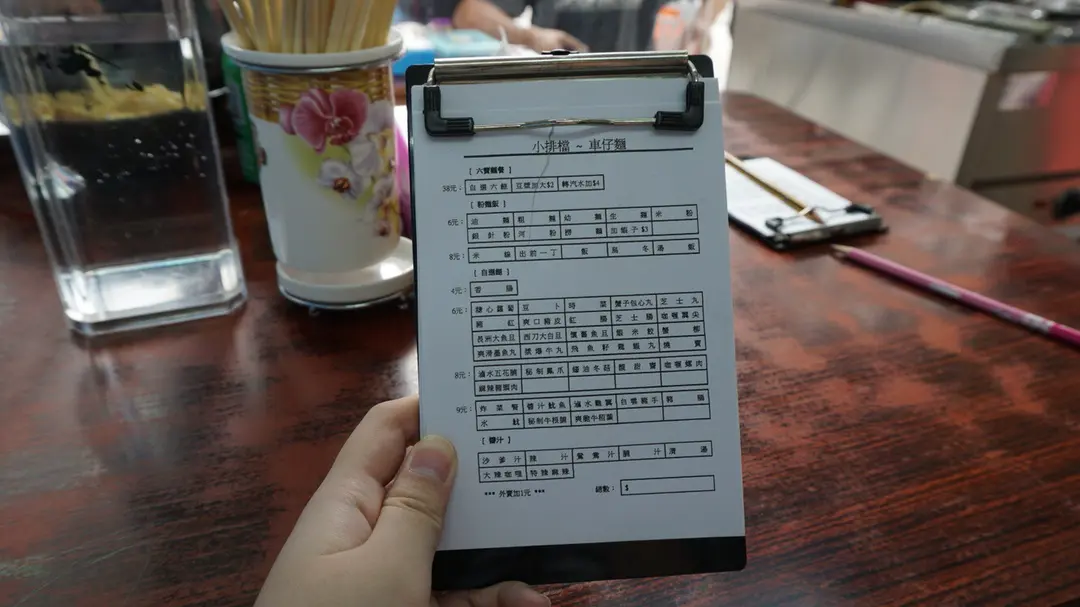 小排檔 ~ 車仔麵
[ 六寶麵餐 ]
38元： 自選六餸 豆漿加大$2 轉汽水加$4
[ 粉麵飯 ]
6元： 油麵 粗麵 幼麵 生麵 米粉
銀針粉 河粉 撈麵 加蝦子$3
8元： 米線 出前一丁 飯 烏冬 湯飯
[ 自選餸 ]
4元： 香腸
6元： 豆卜 時菜 蟹子包心丸 芝士丸
豬紅 爽口豬皮 紅腸 芝士腸 咖喱翼尖
長洲大魚旦 西刀大白旦 炸醬魚旦 蝦米餃 蟹柳
爽滑墨魚丸 爆漿牛丸 飛魚籽龍蝦丸 燒賣
8元： 滷水五花腩 秘制鳳爪 蠔油冬菇 酸甜齋 咖喱螺肉
麻辣豬頭肉
9元： 炸菜餐 醬汁魷魚 滷水雞翼 白雲豬手 豬腸
水魷 秘制牛根腩 爽脆牛栢葉
[ 醬汁 ]
沙爹汁 辣汁 鴛鴦汁 腩汁 清湯
大辣咖喱 特辣麻辣
*** 外賣加1元 *** 總數： $